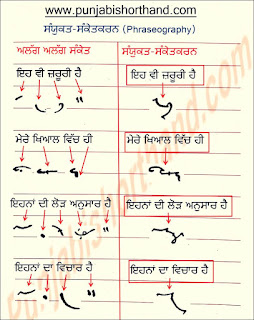 www.punjabishorthand.com
ਸੰਯੁਕਤ-ਸੰਕੇਤਕਰਨ (Phraseography)
ਅਲੱਗ ਅਲੱਗ ਸੰਕੇਤ
ਸੰਯੁਕਤ-ਸੰਕੇਤਕਰਨ
ਇਹ ਵੀ ਜ਼ਰੂਰੀ ਹੈ
ਇਹ ਵੀ ਜ਼ਰੂਰੀ ਹੈ
ਮੇਰੇ ਖਿਆਲ ਵਿੱਚ ਹੀ
ਮੇਰੇ ਖਿਆਲ ਵਿੱਚ ਹੀ
ਇਹਨਾਂ ਦੀ ਲੋੜ ਅਨੁਸਾਰ ਹੈ
ਇਹਨਾਂ ਦੀ ਲੋੜ ਅਨੁਸਾਰ ਹੈ
ਇਹਨਾਂ ਦਾ ਵਿਚਾਰ ਹੈ
ਇਹਨਾਂ ਦਾ ਵਿਚਾਰ ਹੈ
Punjabishorthand.com